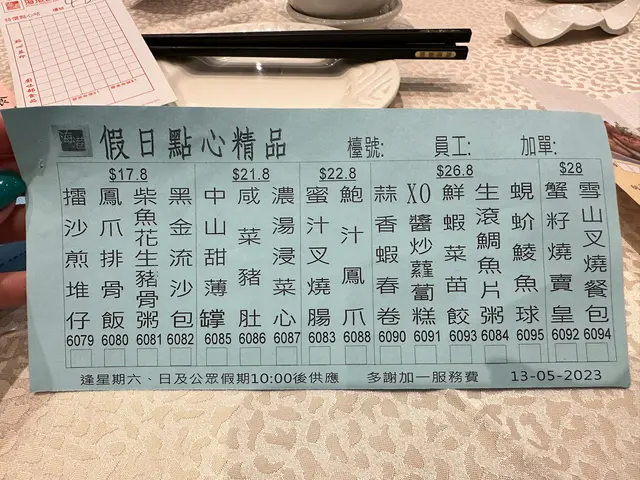 假日點心精品 檯號: 員工: 加單:
$17.8
擂沙煎堆仔 6079
鳳爪排骨飯 6080
柴魚花生豬骨粥 6081
黑金流沙包 6082
$21.8
中山甜薄罉 6085
咸菜豬肚 6086
濃湯浸菜心 6087
$22.8
蜜汁叉燒腸 6083
鮑汁鳳爪 6088
$26.8
蒜香蝦春卷 6090
XO醬炒蘿蔔糕 6091
鮮蝦菜苗餃 6093
生滾鯛魚片粥 6084
蜆蚧鯪魚球 6095
$28
蟹籽燒賣皇 6092
雪山叉燒餐包 6094
逢星期六、日及公眾假期10:00後供應 多謝加一服務費 13-05-2023